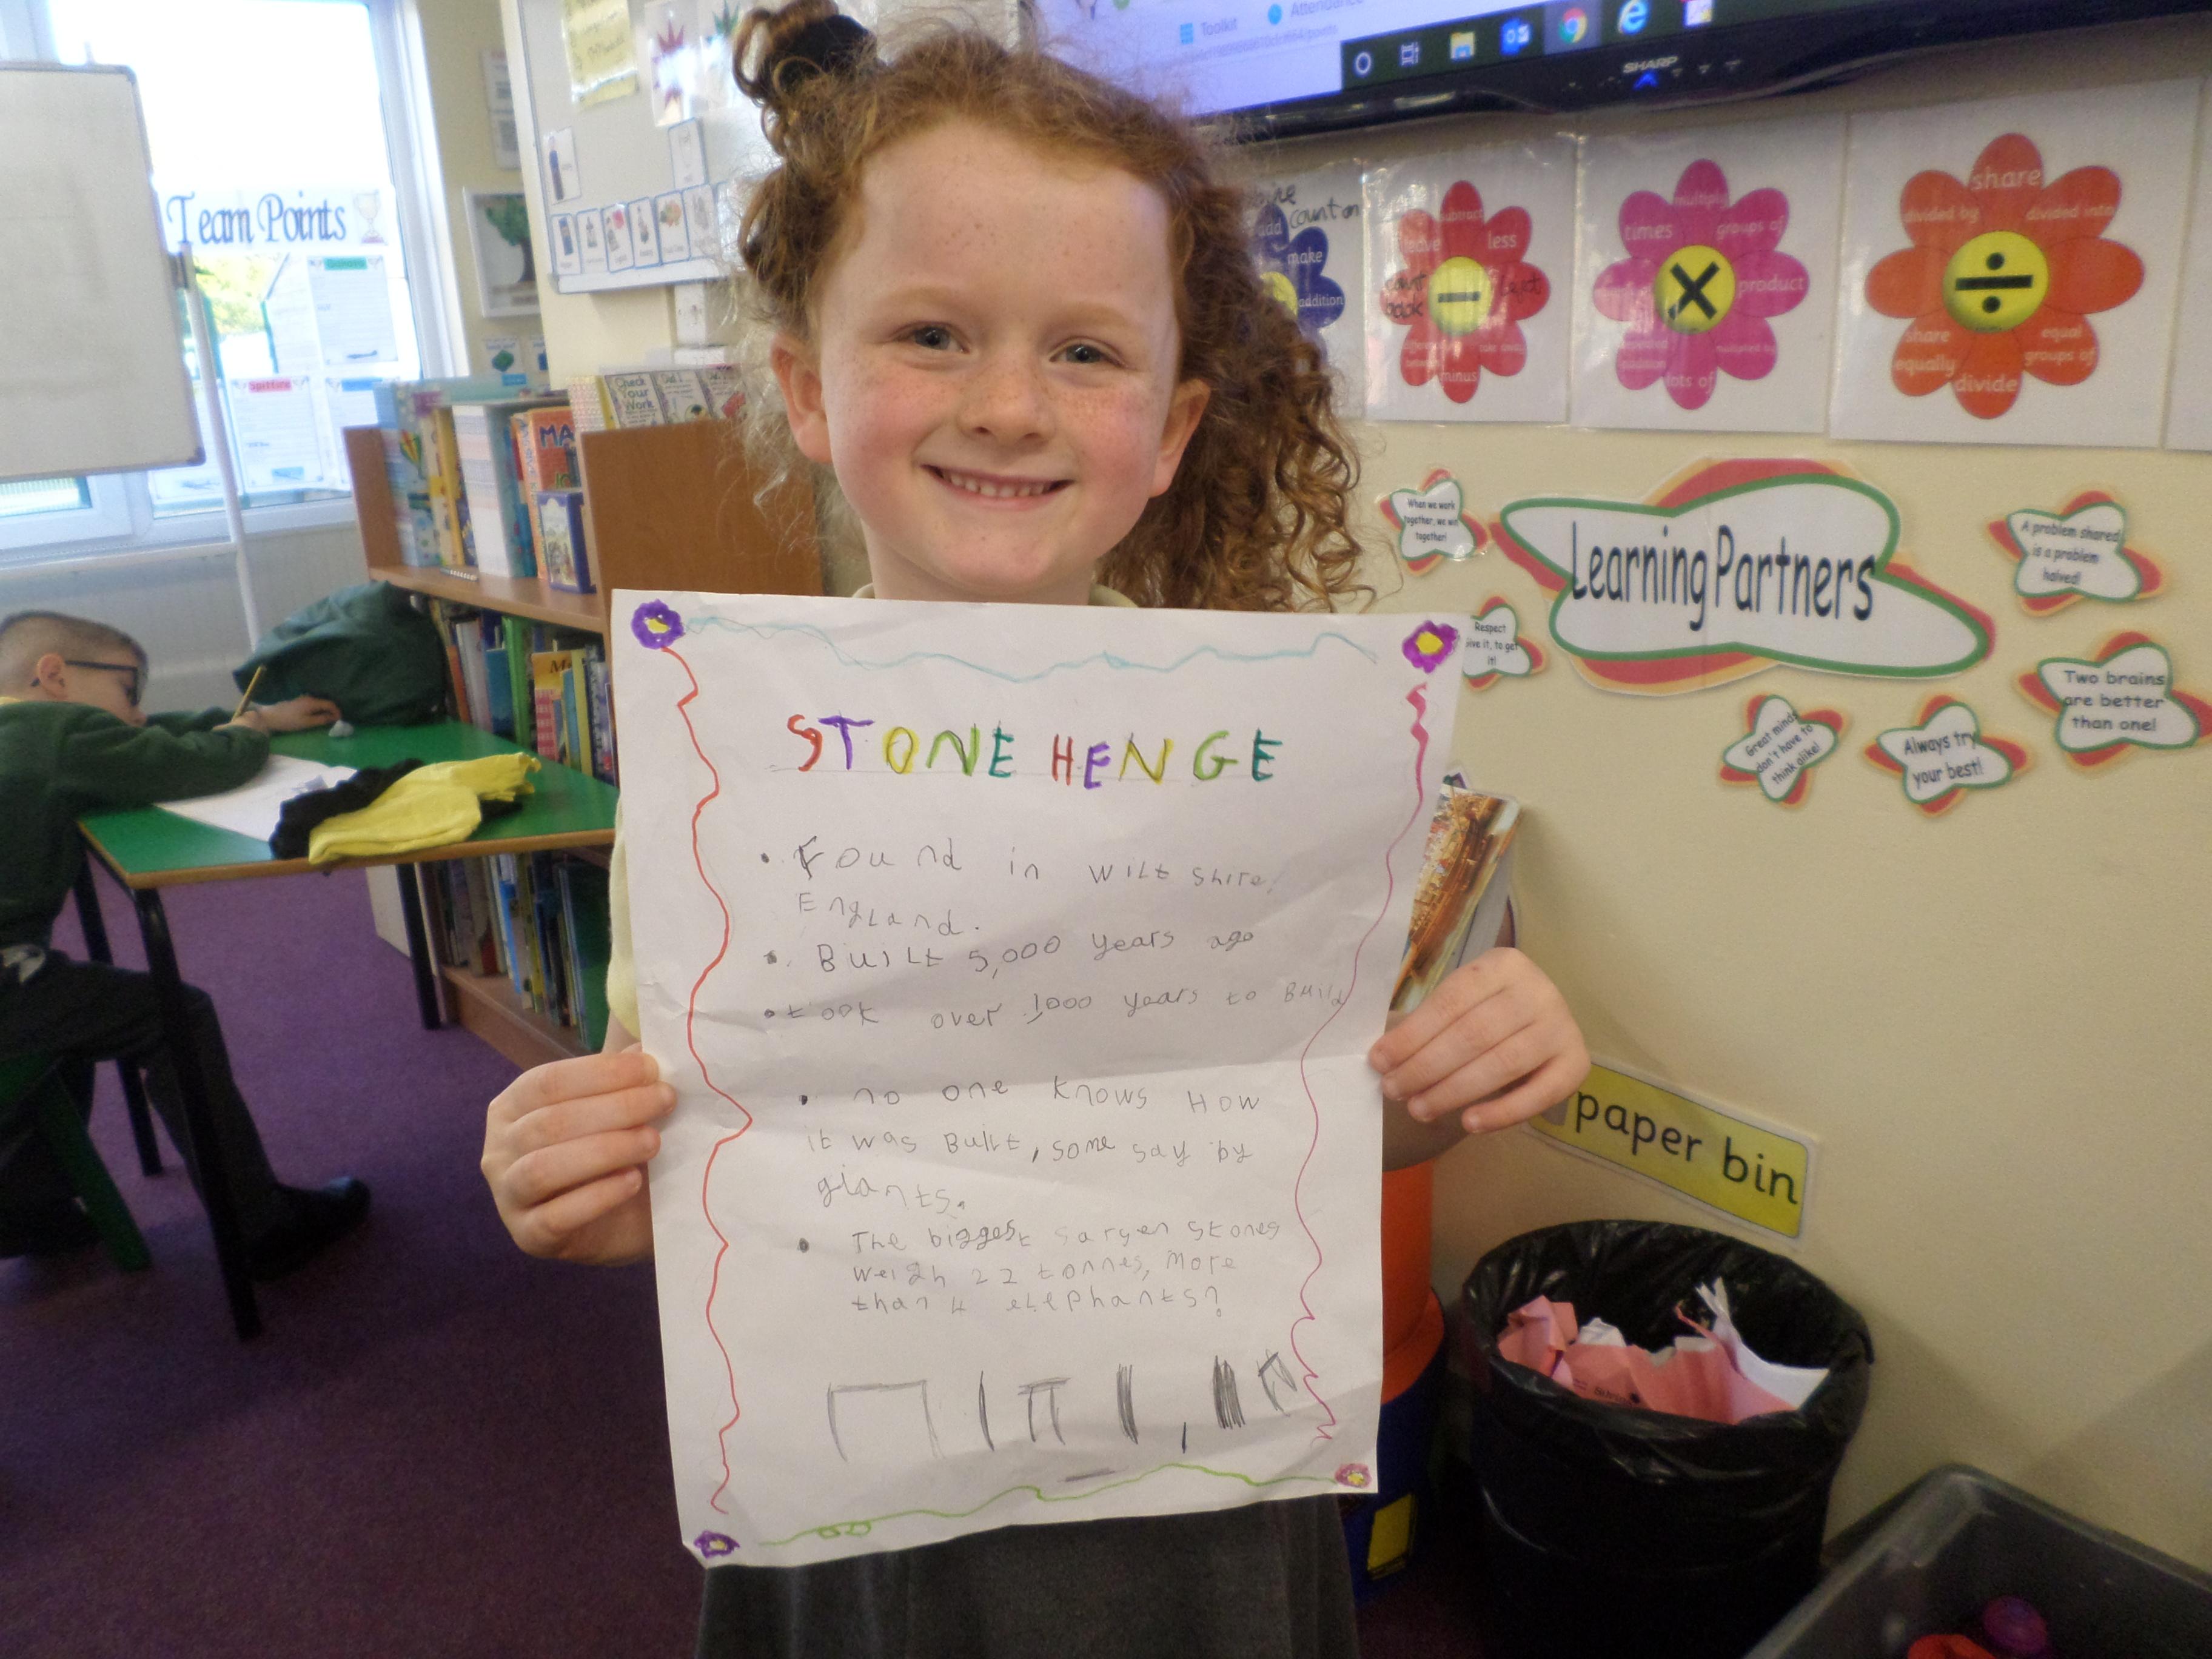 Toolkit
Attendance
SHARP
Team Points
Spitfire
Check
Our
Work
add
count on
make
addition
subtract
less
leave
count
back
minus
multiply
times
groups of
product
lots of
share
divided by
divided into
share
equally
equal
groups of
divide
When we work
together, we win
together!
Learning Partners
A problem shared
is a problem
halved!
Respect
give it, to get
it!
Two brains
are better
than one!
Great minds
don't have to
think alike!
Always try
your best!
STONE HENGE
• Found in wiltshire,
England.
• Built 5,000 years ago
• took over 1000 years to Build
• no one knows How
it was Built, some say by
giants.
• The biggest sarsen stones
weigh 22 tonnes, more
than 4 elephants?
paper bin